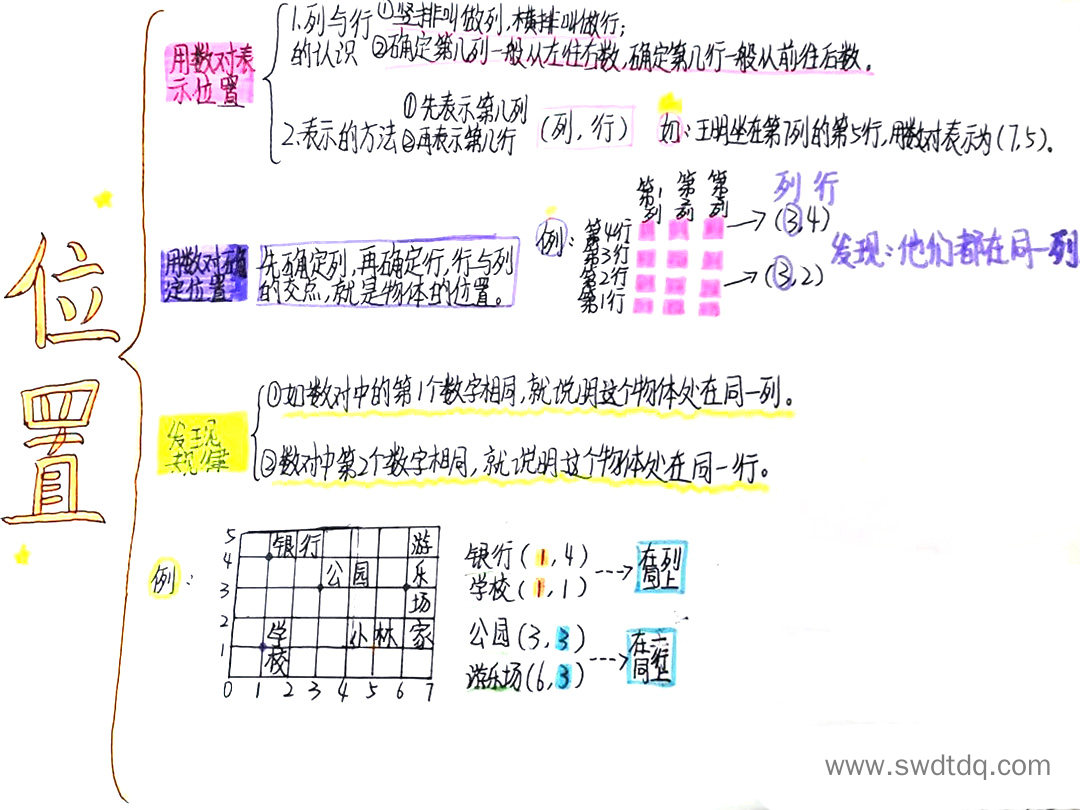 位置
用数对表
示位置
1.列与行
的认识
①竖排叫做列,横排叫做行;
②确定第几列一般从左往右数,确定第几行一般从前往后数。
2.表示的方法
①先表示第几列
②再表示第几行
(列,行)
如:王明坐在第7列的第5行,用数对表示为(7,5)。
用数对确
定位置
先确定列,再确定行,行与列
的交点,就是物体的位置。
例:
第1列
第列
第列
第4行
第3行
第2行
第1行
列 行
(3,4)
(3,2)
发现:他们都在同一列
发现
规律
①如数对中的第1个数字相同,就说明这个物体处在同一列。
②数对中第2个数字相同,就说明这个物体处在同一行。
例:
5
4
3
2
1
0 1 2 3 4 5 6 7
银行
游乐场
公园
学校
小林家
银行(1,4)
学校(1,1)
在列
同上
公园(3,3)
游乐场(6,3)
在一行
同上
www.swdtdq.com